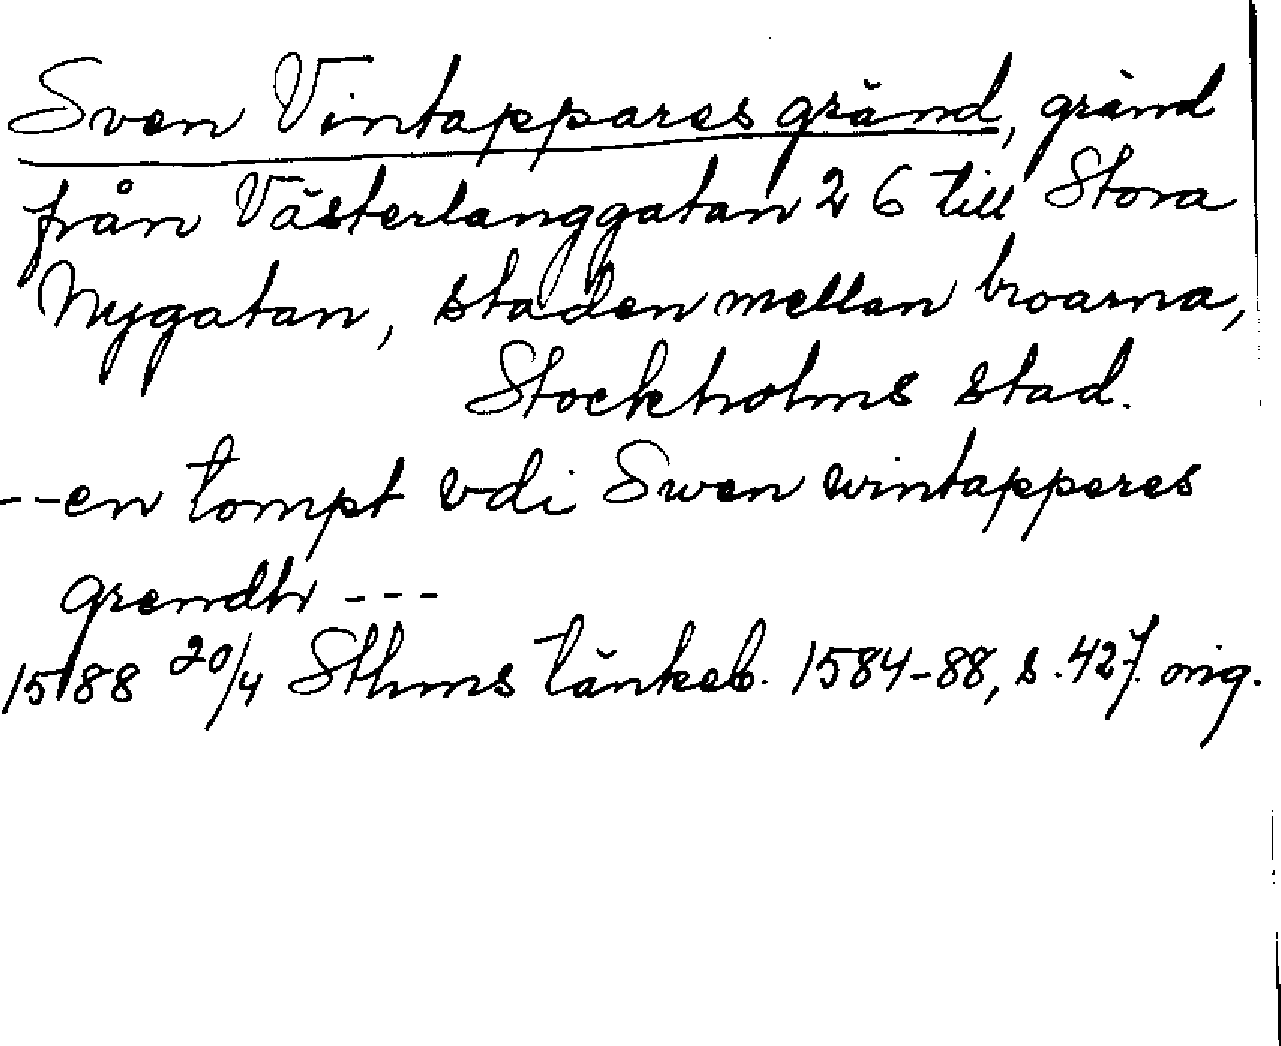 Sven Vintappares gränd, gränd
från Västerlanggatan 26 till Stora
Nygatan, staden mellan broarna,
Stockholms stad.
--en tompt vdi Swen wintapperes
grendh ---
1588 20/4 Sthms tänkeb. 1584-88, s. 427. orig.